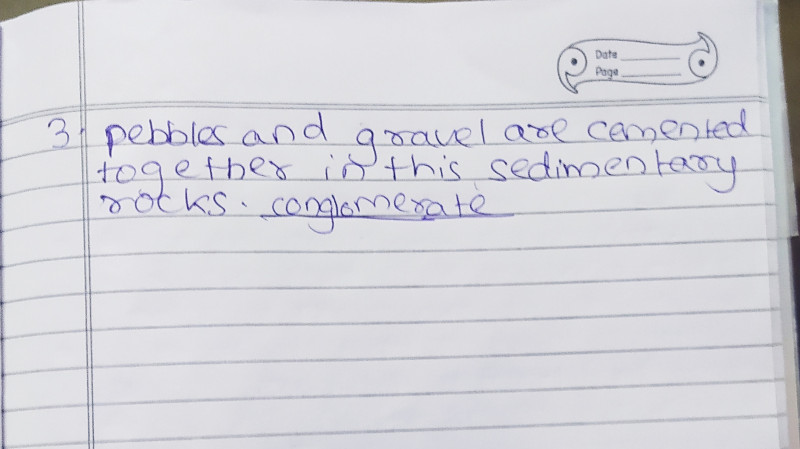 Date
Page
3. pebbles and gravel are cemented
together in this sedimentary
rocks. conglomerate